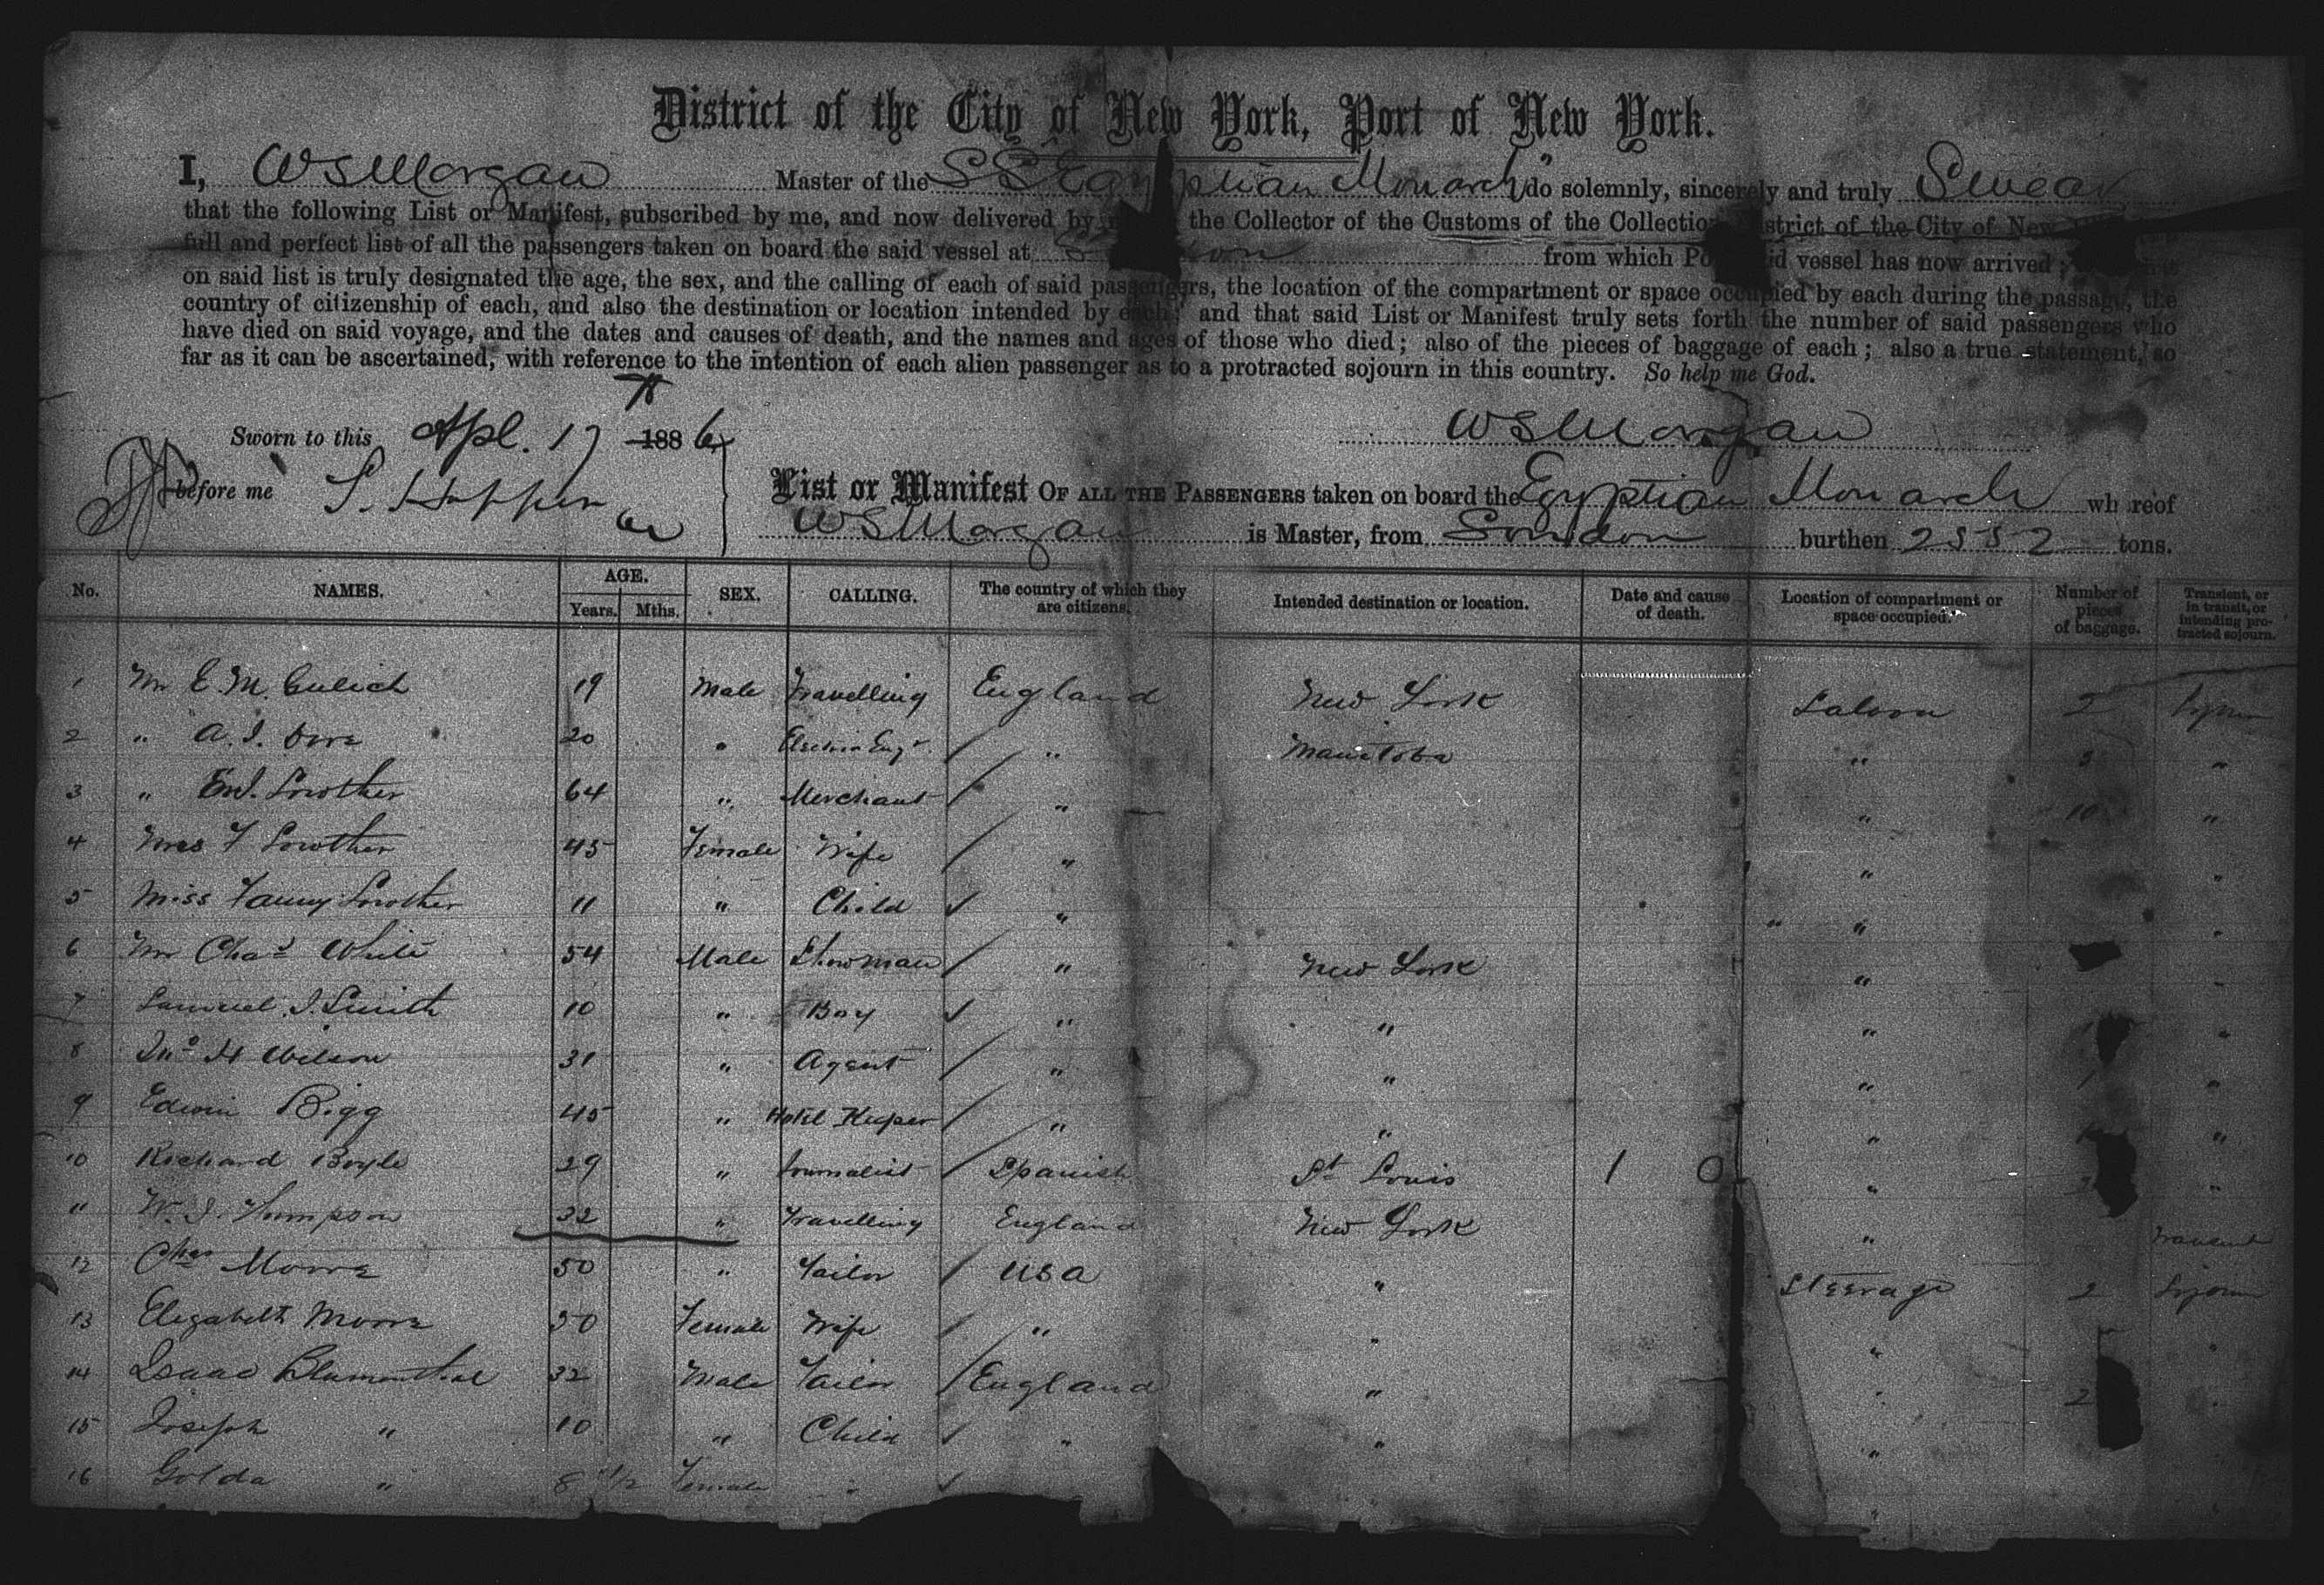 District of the City of New York, Port of New York.
I, W S Morgan Master of the SS "Egyptian Monarch" do solemnly, sincerely and truly Swear
that the following List or Manifest, subscribed by me, and now delivered by the Collector of the Customs of the Collection District of the City of New
full and perfect list of all the passengers taken on board the said vessel at London from which Port said vessel has now arrived; that
on said list is truly designated the age, the sex, and the calling of each of said passengers, the location of the compartment or space occupied by each during the passage, the
country of citizenship of each, and also the destination or location intended by each; and that said List or Manifest truly sets forth the number of said passengers who
have died on said voyage, and the dates and causes of death, and the names and ages of those who died; also of the pieces of baggage of each; also a true statement, so
far as it can be ascertained, with reference to the intention of each alien passenger as to a protracted sojourn in this country. So help me God.
Sworn to this Apl. 17 1886 W S Morgan
before me
List or Manifest OF ALL THE PASSENGERS taken on board the Egyptian Monarch whereof
W S Morgan is Master, from London burthen 2552 tons.
No. NAMES. AGE. Years. Mths. SEX. CALLING. The country of which they are citizens. Intended destination or location. Date and cause of death. Location of compartment or space occupied. Number of pieces of baggage. Transient, or in transit, or intending protracted sojourn.
1 Mr E. M. Gulich 19 Male Travelling England New York Saloon 2
2 " A. J. Dore 20 " " Manitoba " 3 "
3 " Lowther 64 " Merchant " " 10 "
4 Mrs F Lowther 45 Female Wife " " "
5 Miss Fanny Lowther 11 " Child " " " "
6 Mr Chas White 54 Male Showman " New York " "
7 Samuel J. Smith 10 " Boy " " " "
8 Jno H Wilson 31 " Agent " " " 1 "
9 Edwin Bigg 45 " Hotel Keeper " " " "
10 Richard Boyle 29 " Journalist Spanish St Louis 1 0 " 2 "
11 W. J. Thompson 32 " Travelling England New York " Transient
12 Chas Moore 50 " Tailor USA " Steerage 2 Sojourn
13 Elizabeth Moore 50 Female Wife " " " "
14 Isaac Blumenthal 32 Male Tailor England " " 2 "
15 Joseph " 10 " Child " " "
16 Golda " 8 1/2 Female "